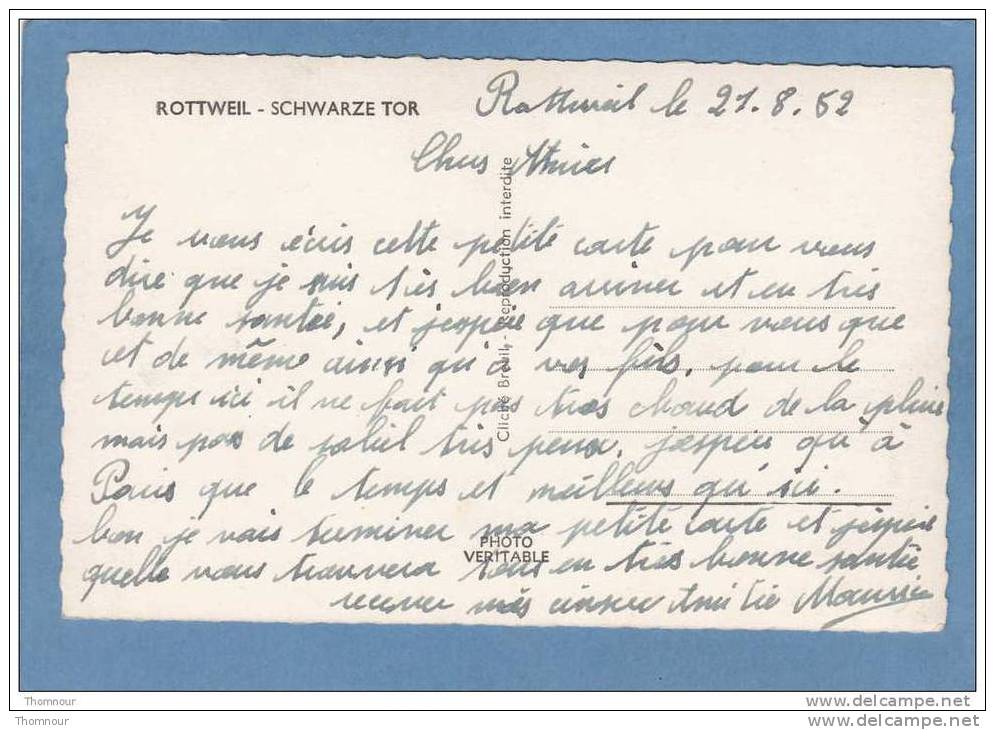 ROTTWEIL - SCHWARZE TOR
Rottweil le 21.8.52
Chers Amies
Je vous écris cette petite carte pour vous
dire que je suis très bien arriver et en très
bonne santée, et j'espère que pour vous que
et de même ainsi qu'à vos fils. pour le
temps ici il ne fait pas très chaud de la pluie
mais pas de soleil très peux. j'espère qu'à
Paris que le temps et meilleurs qu'ici.
bon je vais terminer ma petite carte et j'espère
quelle vous trouvera tous en très bonne santée
recever mes sinser Amitié Maurice
Cliché Breuil - Reproduction interdite
PHOTO
VERITABLE
Thomnour
Thomnour
www.delcampe.net
www.delcampe.net